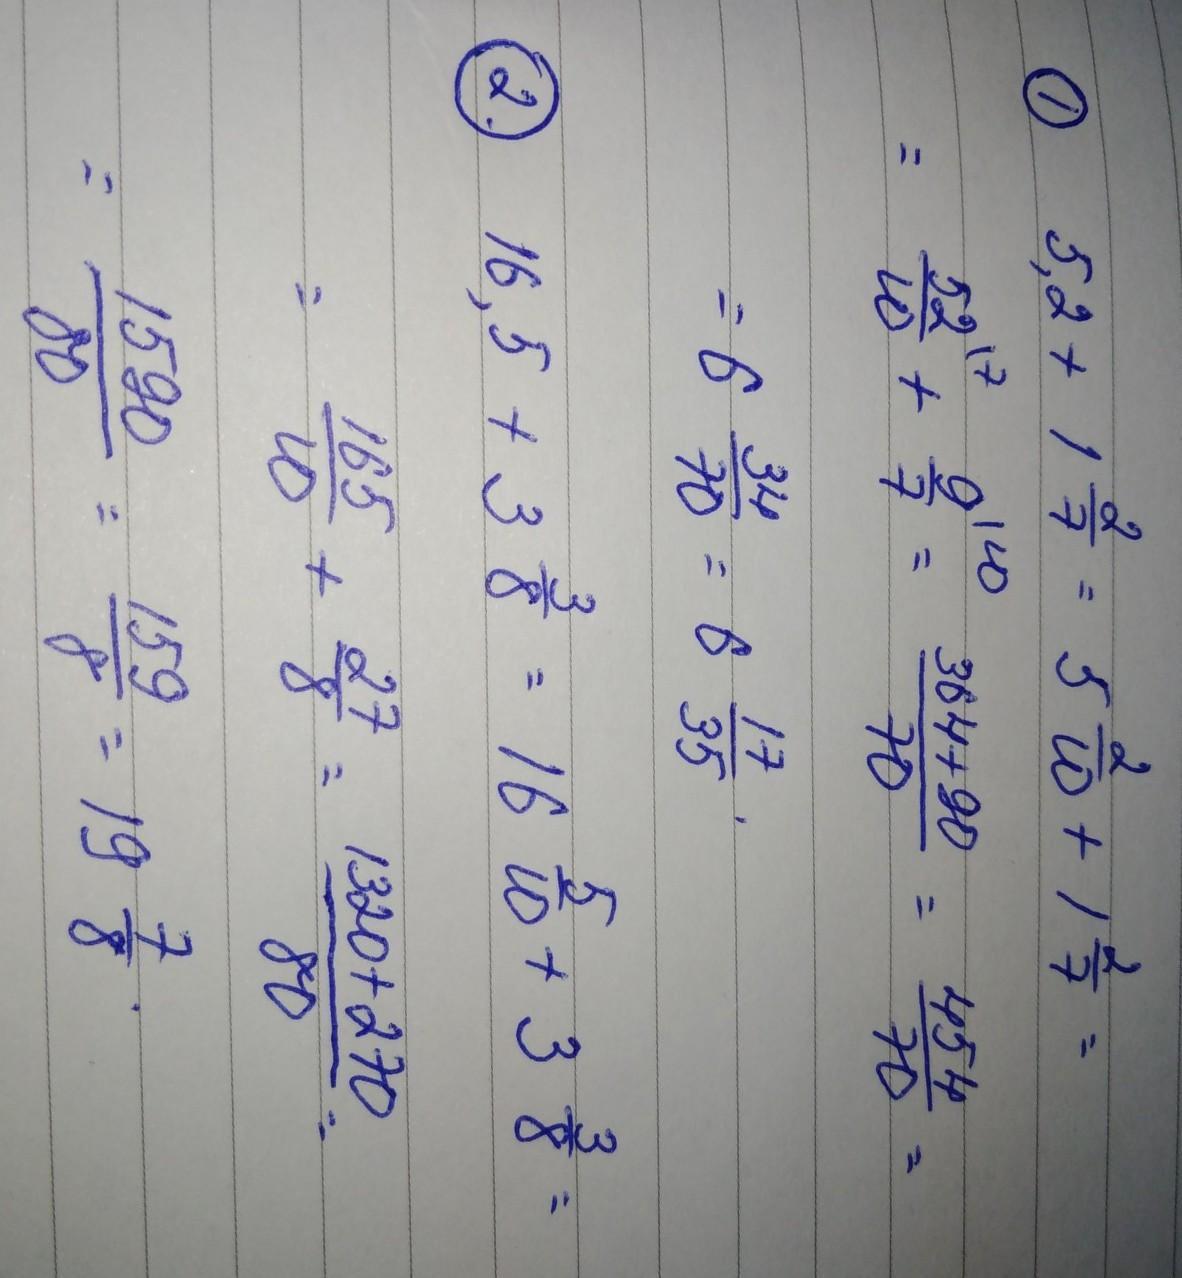 ① 5,2 + 1 2/7 = 5 2/10 + 1 2/7 =
= 52/10 |7 + 9/7 |10 = 364+90/70 = 454/70 =
= 6 34/70 = 6 17/35.
②. 16,5 + 3 3/8 = 16 5/10 + 3 3/8 =
= 165/10 + 27/8 = 1320+270/80 =
= 1590/80 = 159/8 = 19 7/8.